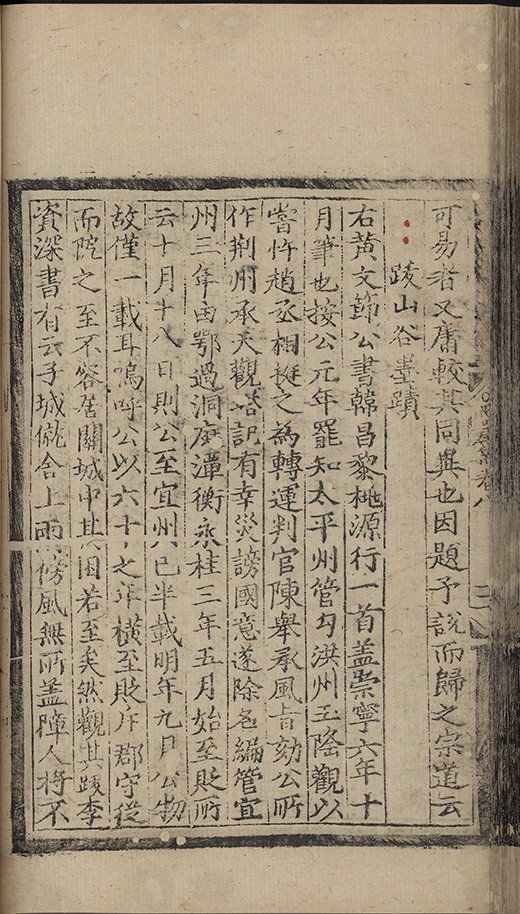 可易者又庸較其同異也因題予說而歸之宗道云
跋山谷墨蹟
右黃文節公書韓昌黎桃源行一首盖崇寧六年十
月筆也按公元年罷知太平州管勾洪州玉隆觀以
甞忤趙丞相挺之為轉運判官陳舉承風旨劾公所
作荆州承天觀塔記有幸災謗國意遂除名編管宜
州三年由鄂過洞庭潭衡永桂三年五月始至貶所
云十月十八日則公至宜州已半載明年九月公物
故僅一載耳嗚呼公以六十之年橫至貶斥郡守從
而阸之至不容居關城中其困若至矣然觀其跋李
資深書有云予城僦舍上雨傍風無所盖障人將不